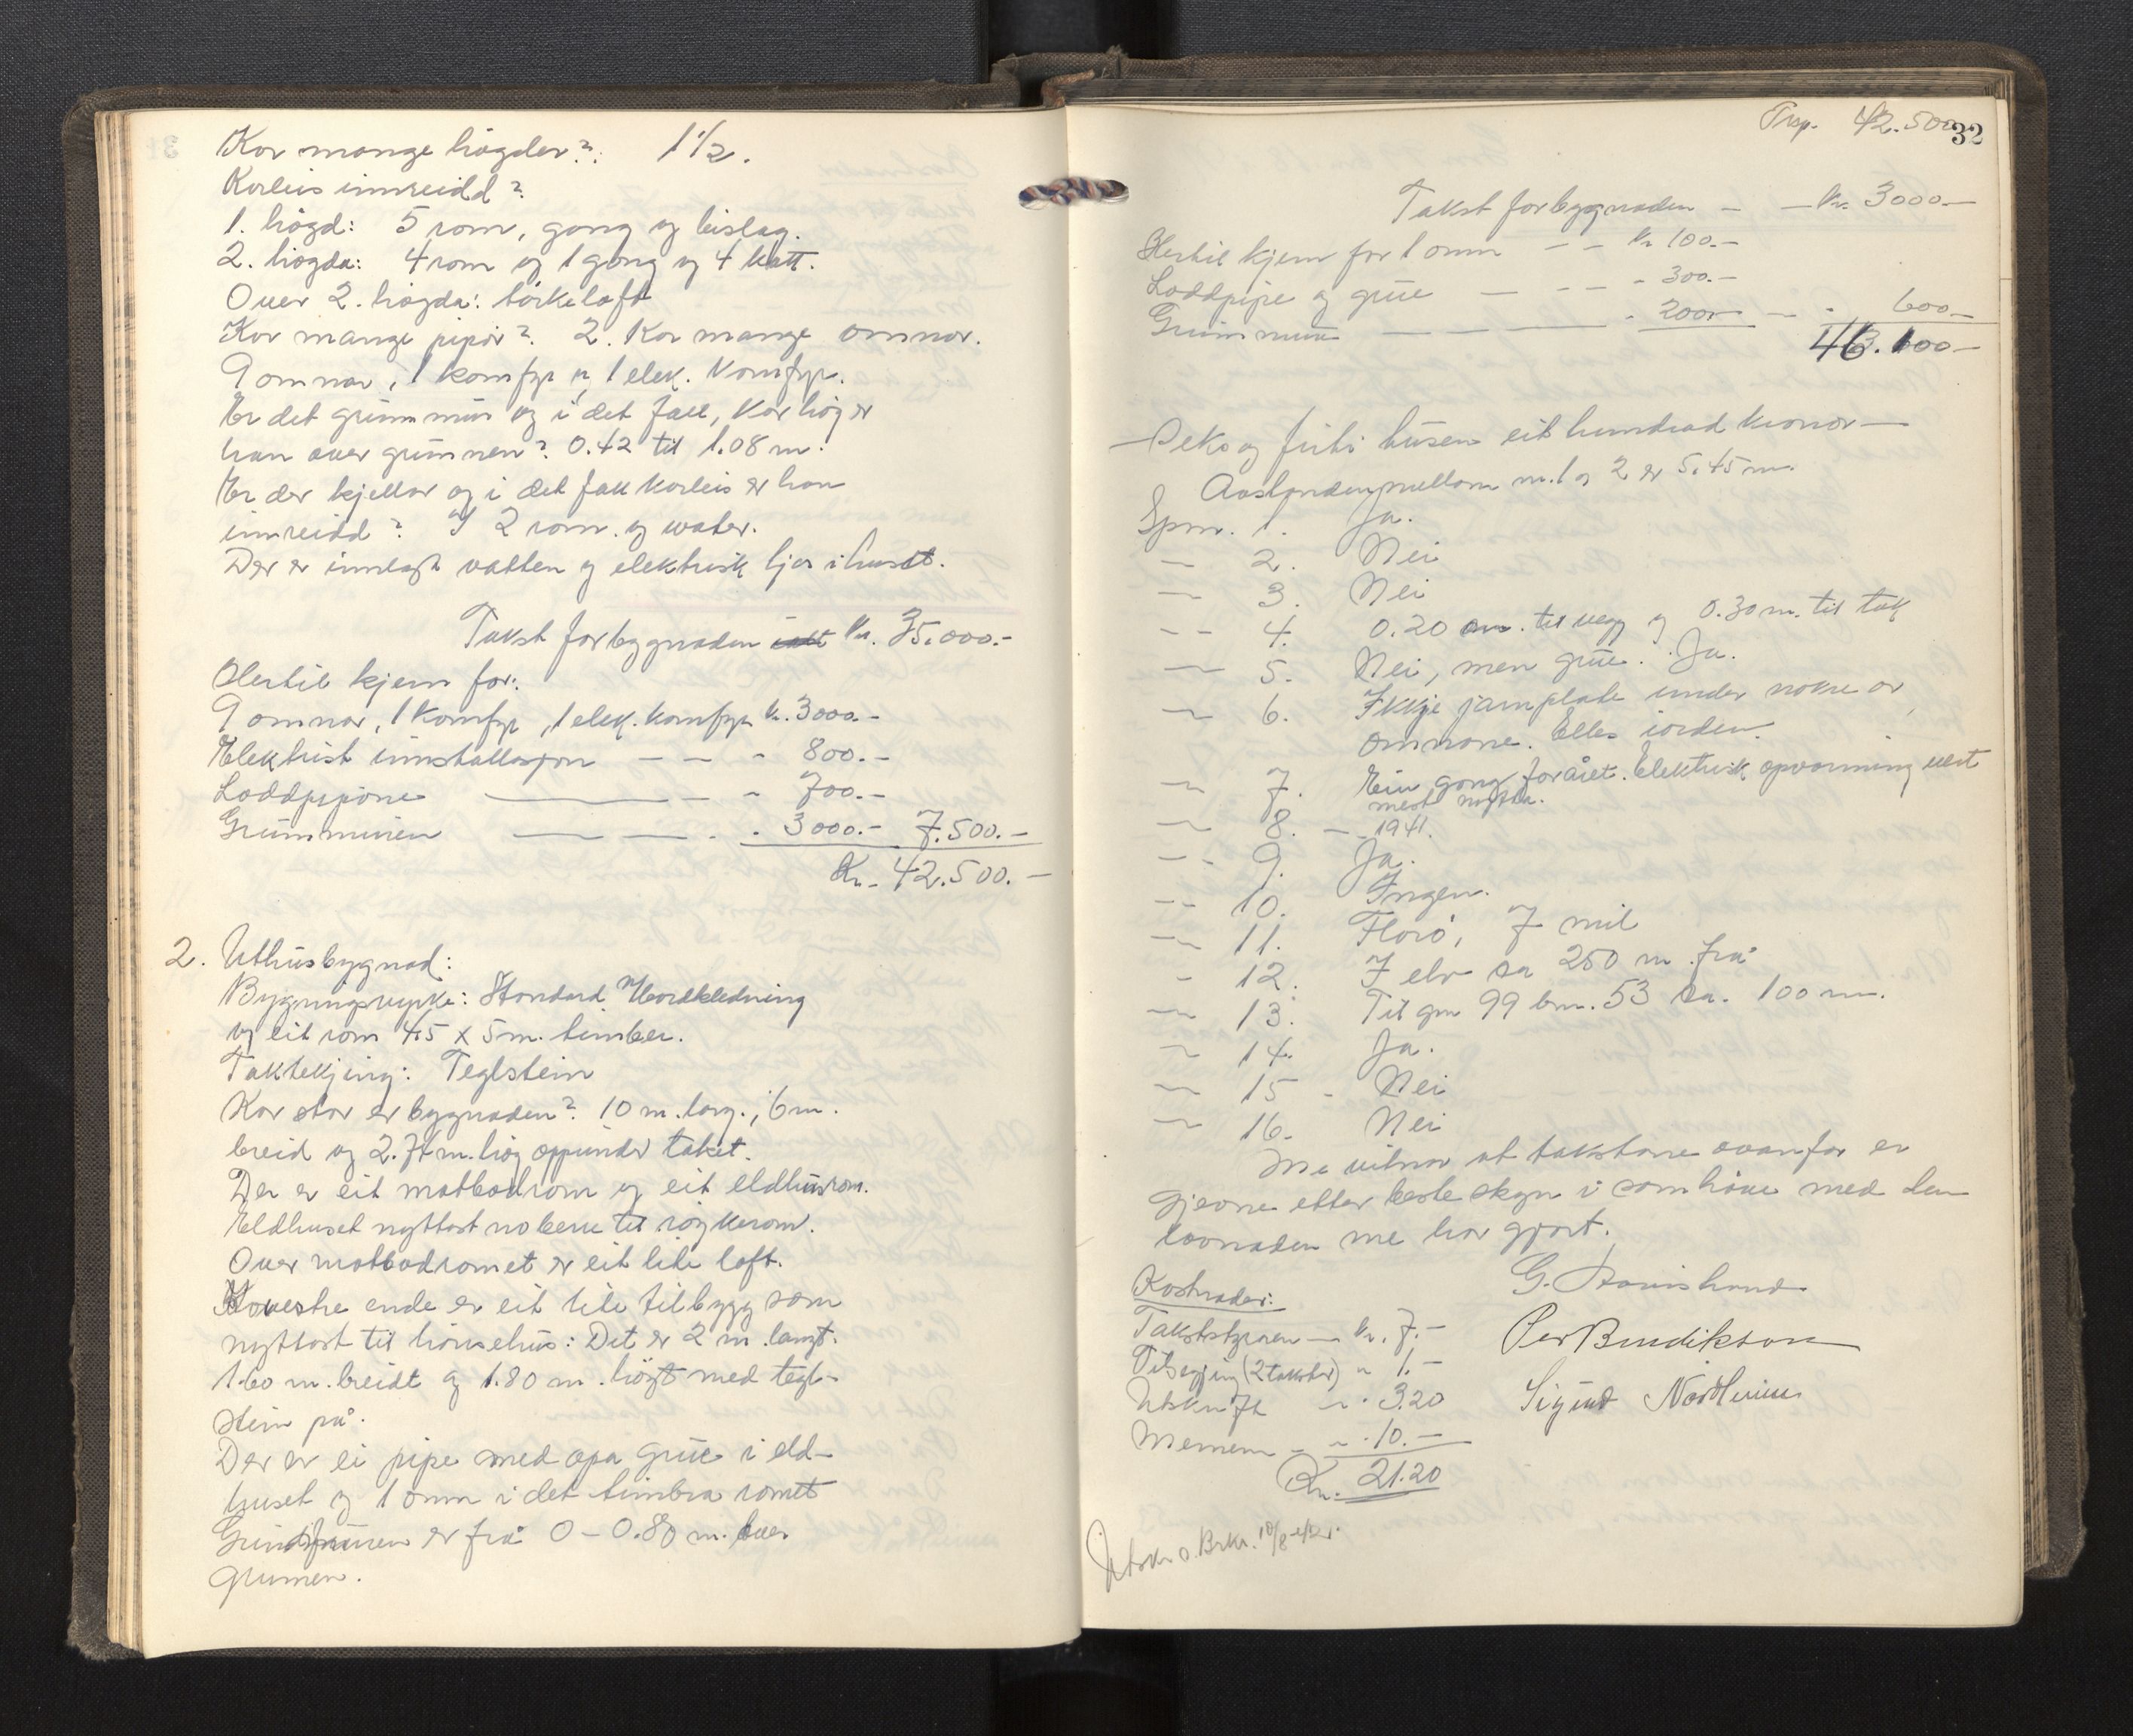 Kor mange høgder? 1 1/2.
Korleis innreidd?
1. høgd: 5 rom, gong og bislag.
2. høgda: 4 rom og 1 gong og 4 kott.
Over 2. høgda: törkeloft
Kor mange pipor? 2. Kor mange omnor.
9 omnar, 1 komfyr og 1 elek. komfyr.
Er det grunnmur og i det fall, kor høg er
han over grunnen? 0.42 til 1.08 m.
Er der kjellar og i det fall korleis er han
innreidd? I 2 rom. og
Der er innlagt vatten og elektrisk ljos i huset.
Takst for bygnaden kr. 35.000.-
Hertil kjem for:
9 omnar, 1 komfyr, 1 elek. komfyr kr. 3000.-
Elektrisk innstallasjon — — - 800.-
Loddpipone — — - 700.-
Grunnmuren — — - 3000.- 7.500.-
Kr. 42.500.-
2. Uthusbygnad:
Bygningsvyrke: Standard Bordkledning
og eit rom 4.5 x 5 m. timber.
Taktekjing: Teglstein
Kor stor er bygnaden? 10 m. lang, 6 m.
breid og 2.74 m. høg oppunder taket.
Der er eit matbodrom og eit eldhusrom.
Eldhuset nyttast no berre til röykerom.
Over matbodromet er eit lite loft.
vestre ende er eit lite tilbygg som
nyttast til hönsehus: Det er 2 m. langt.
1.60 m. breidt og 1.80 m. högt med tegl-
stein på.
Der er ei pipe med opa grue i eld-
huset og 1 omn i det timbra romet
Grunnmuren er frå 0 - 0.80 m. over
grunnen.
Trsp. 42.500
32
Takst for bygnaden — — kr. 3000.-
Hertil kjem for 1 omn — — kr 100.-
Loddpipe og grue — — - 300.-
Grunnmur — — — - 200.- — - 600.-
46.100-
— Seks og fyrti tusen eit hundrad kronor —
Avstanden mellom nr. 1 og 2 er 5.45 m.
Spm. 1. Ja.
— 2. Nei
— 3. Nei
— 4. 0.20 m. til vegg og 0.30 m. til tak
— 5. Nei, men grue. Ja.
— 6. Ikkje jarnplate under nokre av
omnane. Elles iorden.
— 7. Ein gong for året. Elektrisk opvarming vert
mest nytta.
— 8. — 1941.
— 9. Ja.
— 10. Ingen.
— 11. Florö, 7 mil
- 12. I elv ca 250 m frå
— 13. Til gnr 99 bnr. 53 ca. 100 m.
— 14. Ja.
— 15 - Nei
— 16. Nei
Me vitnar at takstane ovanfor er
gjevne etter beste skyn i samhöve med den
lovnaden me har gjort.
Kostnader:
Takststyraren — kr. 7.-
(2 takster) - 1.-
Utskrift - 3.20
Mennene - - 10.-
Kr. 21.20
G.
Per Bendikson
Sigurd
Utskr. s. Brkr. 10/8-42.